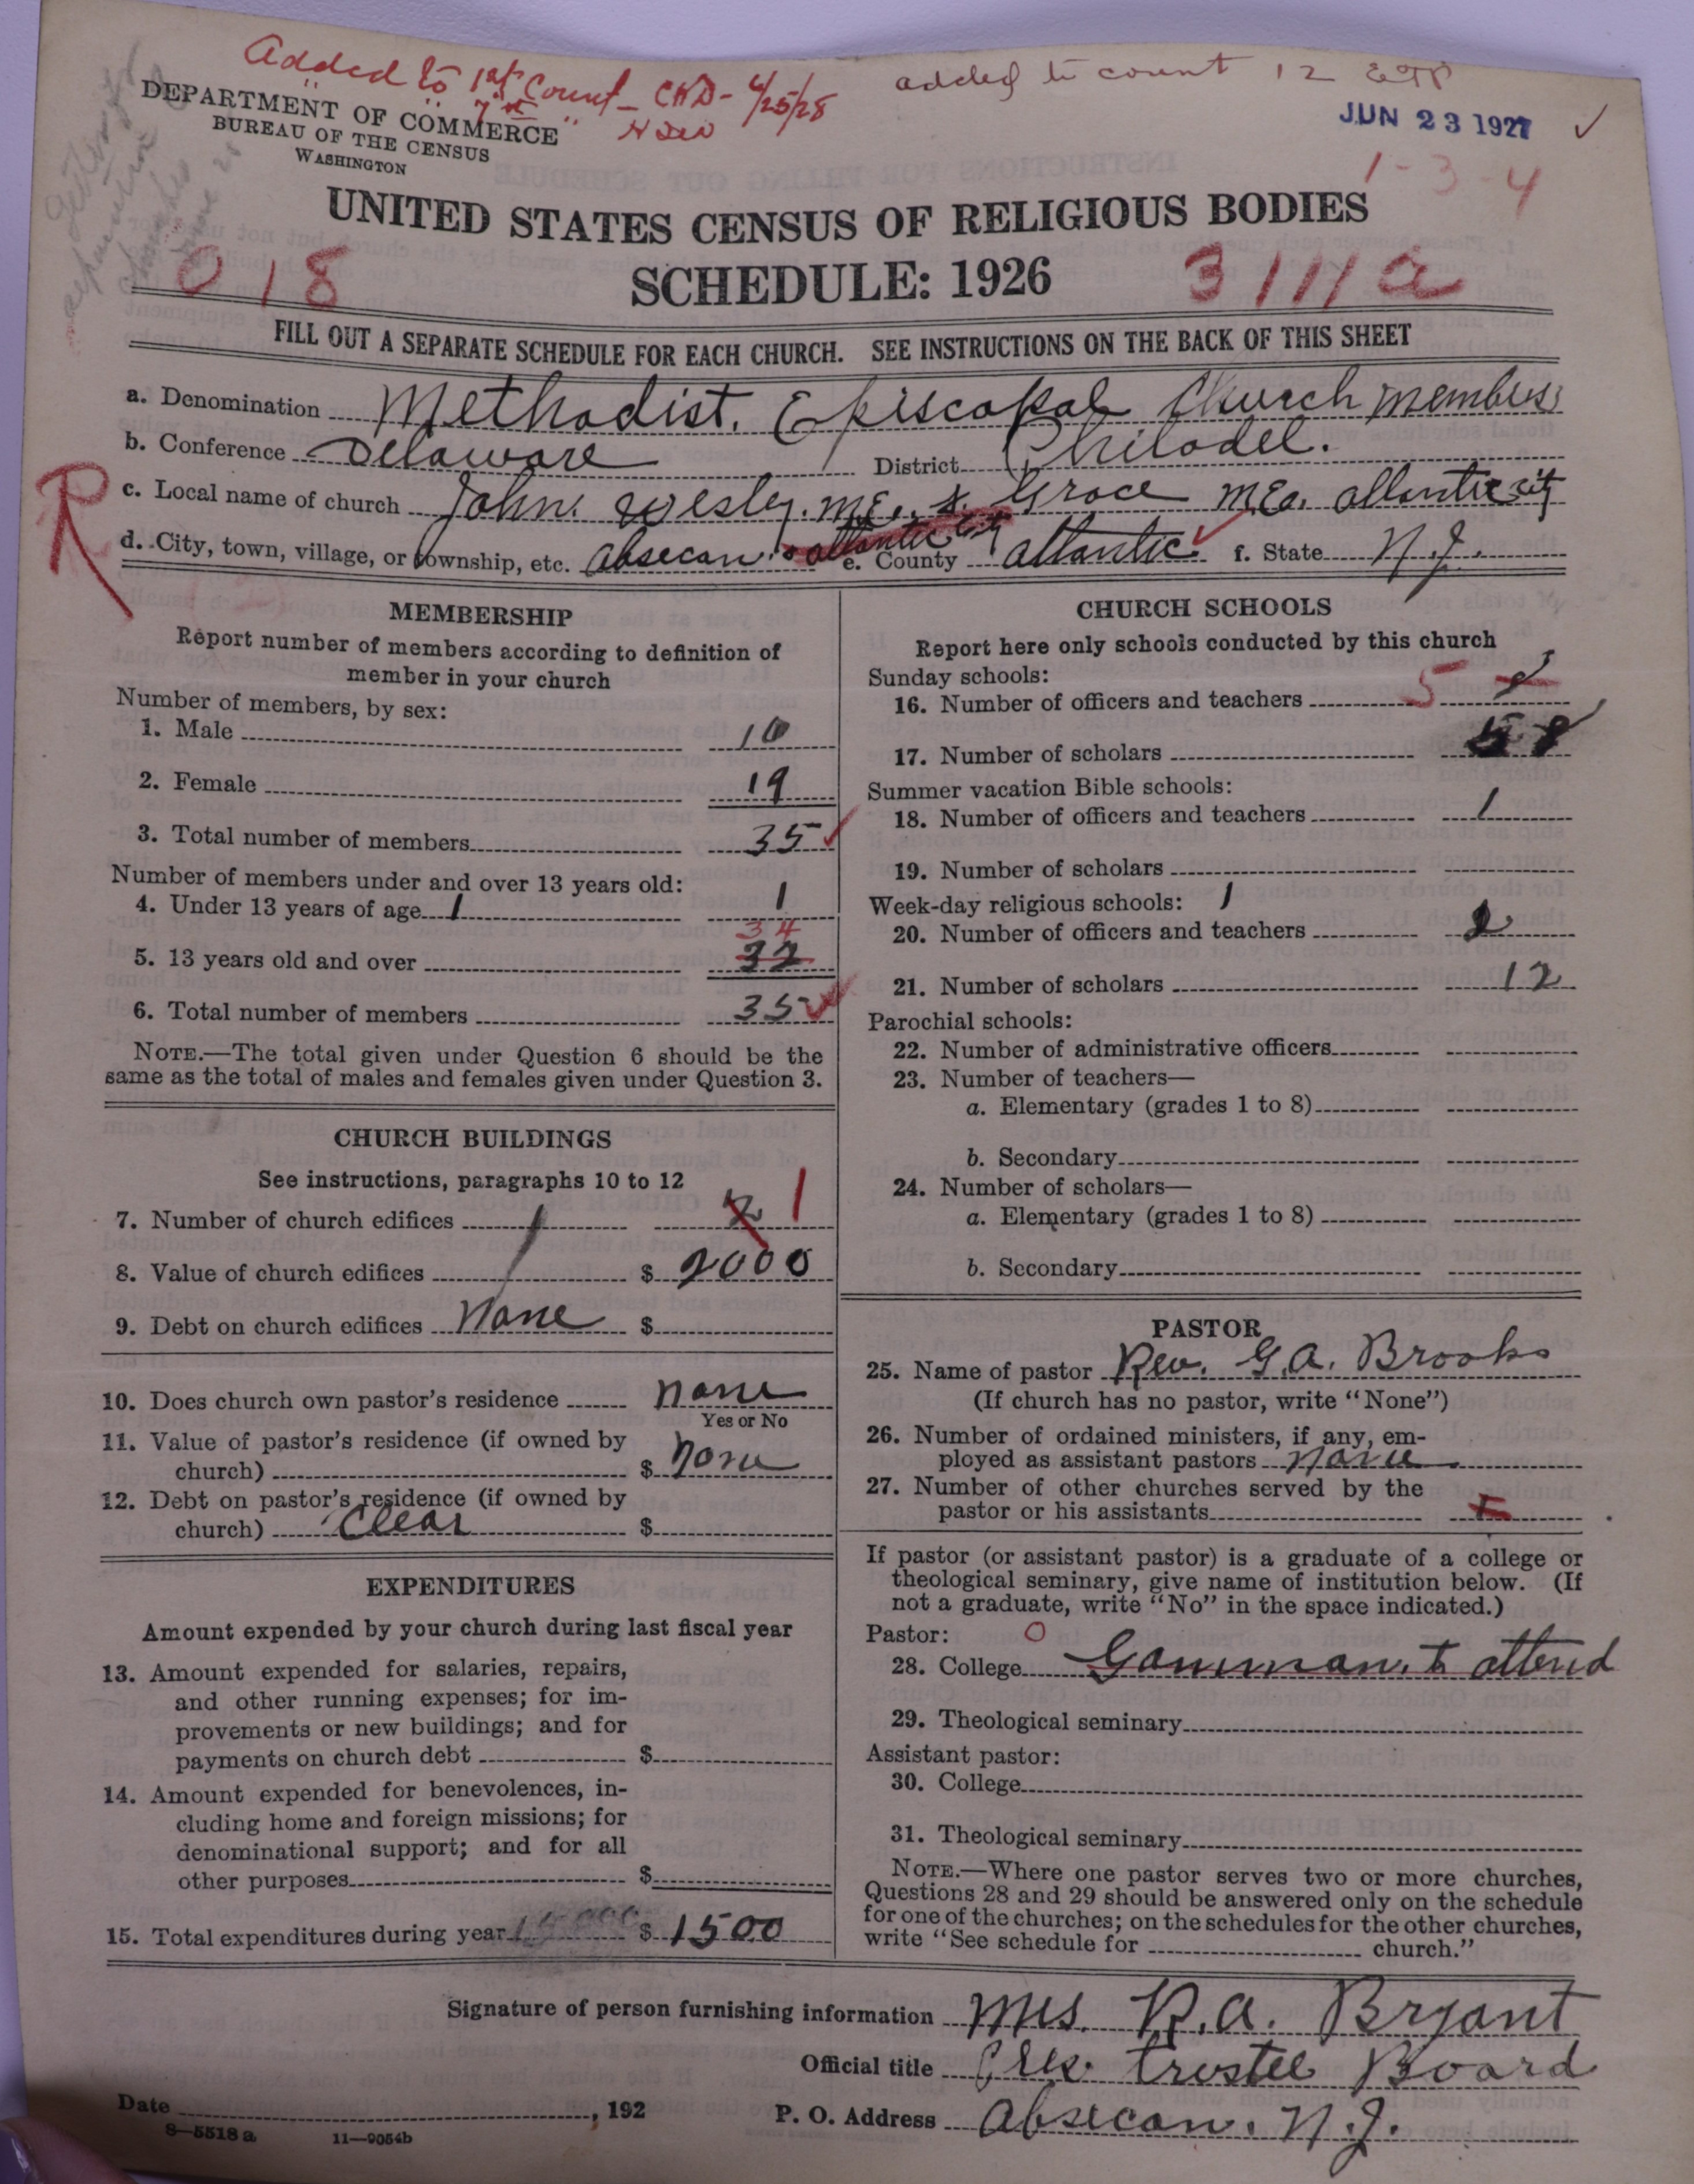 Added to 1st Count - CHD - 4/25/28
added to count 12 ETP
DEPARTMENT OF COMMERCE
BUREAU OF THE CENSUS
WASHINGTON
JUN 23 1927 ✓
1-3-4
UNITED STATES CENSUS OF RELIGIOUS BODIES
018 SCHEDULE: 1926 3111a
FILL OUT A SEPARATE SCHEDULE FOR EACH CHURCH. SEE INSTRUCTIONS ON THE BACK OF THIS SHEET
a. Denomination Methodist. Episcopal Church members
b. Conference Delaware District Philadel.
R
c. Local name of church John. Wesley. M.E. & Grace M.E. atlantic city
d. City, town, village, or township, etc. Absecan. & atlantic City e. County atlantic f. State N.J.
MEMBERSHIP
Report number of members according to definition of
member in your church
Number of members, by sex:
1. Male 16
2. Female 19
3. Total number of members 35
Number of members under and over 13 years old:
4. Under 13 years of age 1 1
34
5. 13 years old and over 32
6. Total number of members 35
NOTE.—The total given under Question 6 should be the
same as the total of males and females given under Question 3.
CHURCH BUILDINGS
See instructions, paragraphs 10 to 12
7. Number of church edifices 1 2 1
8. Value of church edifices $ 2000
9. Debt on church edifices None $
10. Does church own pastor's residence none
Yes or No
11. Value of pastor's residence (if owned by
church) $ none
12. Debt on pastor's residence (if owned by
church) Clear $
EXPENDITURES
Amount expended by your church during last fiscal year
13. Amount expended for salaries, repairs,
and other running expenses; for im-
provements or new buildings; and for
payments on church debt $
14. Amount expended for benevolences, in-
cluding home and foreign missions; for
denominational support; and for all
other purposes $
15. Total expenditures during year $ 1500
CHURCH SCHOOLS
Report here only schools conducted by this church
Sunday schools:
16. Number of officers and teachers 5
17. Number of scholars
Summer vacation Bible schools:
18. Number of officers and teachers 1
19. Number of scholars
Week-day religious schools: 1
20. Number of officers and teachers 2
21. Number of scholars 12
Parochial schools:
22. Number of administrative officers
23. Number of teachers—
a. Elementary (grades 1 to 8)
b. Secondary
24. Number of scholars—
a. Elementary (grades 1 to 8)
b. Secondary
PASTOR
25. Name of pastor Rev. G.A. Brooks
(If church has no pastor, write "None")
26. Number of ordained ministers, if any, em-
ployed as assistant pastors None
27. Number of other churches served by the
pastor or his assistants
If pastor (or assistant pastor) is a graduate of a college or
theological seminary, give name of institution below. (If
not a graduate, write "No" in the space indicated.)
Pastor: 0
28. College Gammman. to attend
29. Theological seminary
Assistant pastor:
30. College
31. Theological seminary
NOTE.—Where one pastor serves two or more churches,
Questions 28 and 29 should be answered only on the schedule
for one of the churches; on the schedules for the other churches,
write "See schedule for church."
Signature of person furnishing information Mrs. R.A. Bryant
Official title Trustee Board
Date , 192 P. O. Address Absecan. N.J.
8—5518 a 11—9054b